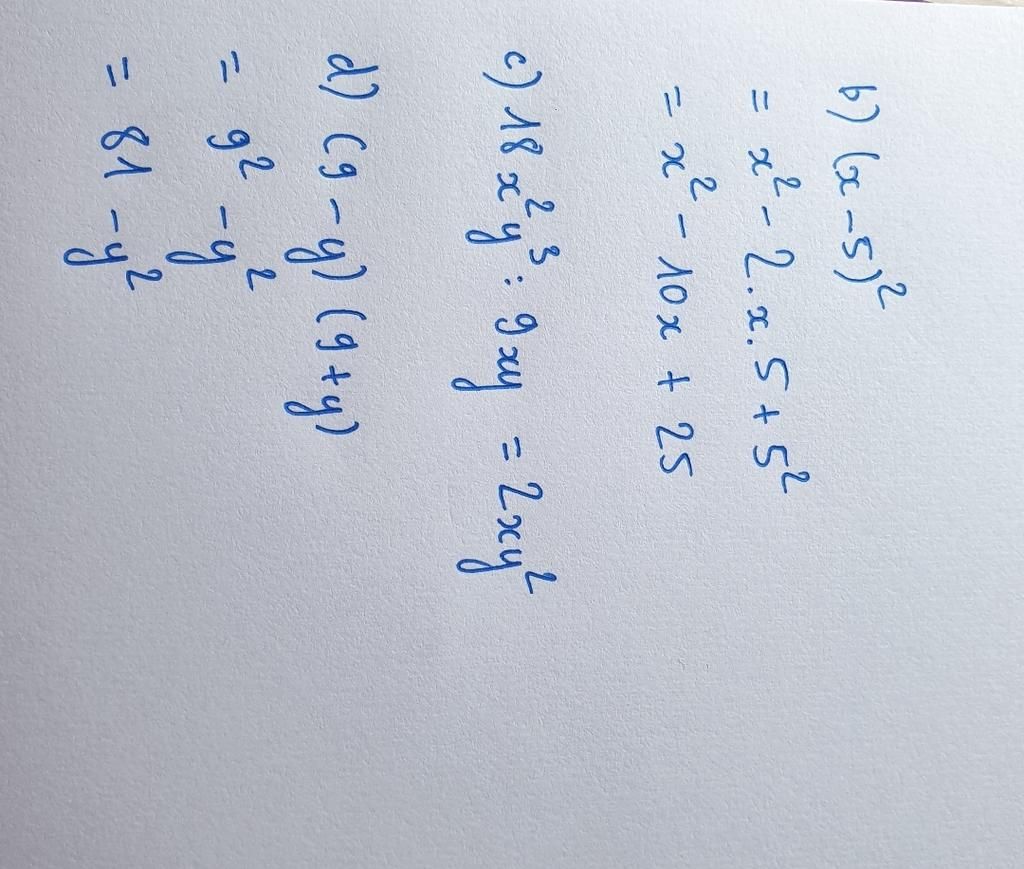 b) (x - 5)²
= x² - 2.x.5 + 5²
= x² - 10x + 25
c) 18x²y³ : 9xy = 2xy²
d) (9 - y) (9 + y)
= 9² - y²
= 81 - y²